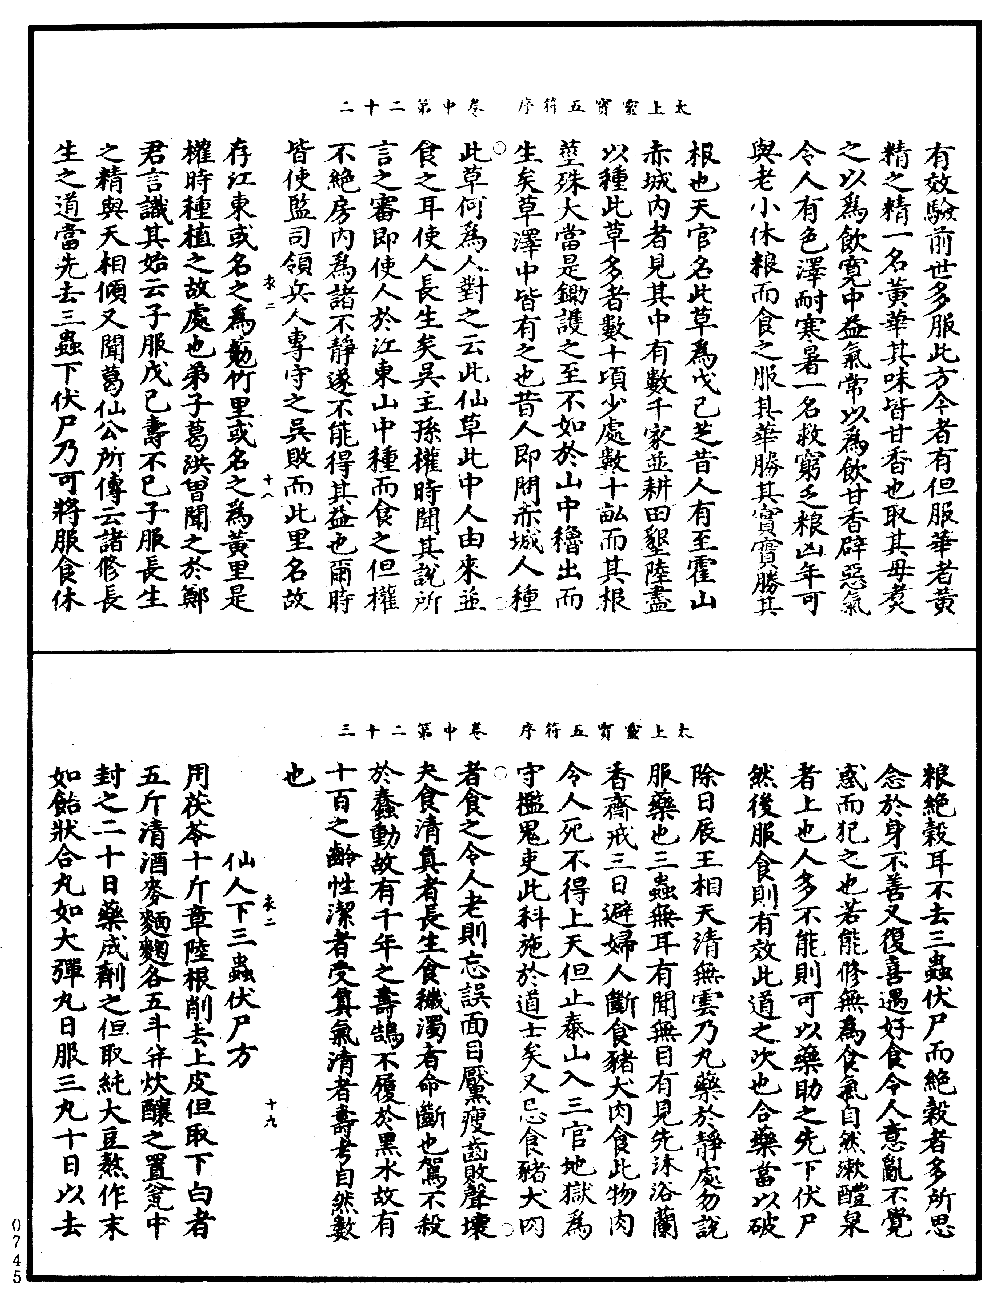 太上靈寳五符序　卷中第二十二
有效驗前世多服此方今者有但服華者黃
精之精一名黃華其味皆甘香也取其母煑
之以爲飲寛中益氣常以爲飲甘香辟惡氣
令人有色澤耐寒暑一名救窮乏粮凶年可
與老小休粮而食之服其華勝其實實勝其
根也天官名此草爲戊己芝昔人有至霍山
赤城内者見其中有數千家並耕田墾陸盡
以種此草多者數十頃少處數十畝而其根
莖殊大當是鋤護之至不如於山中穭出而
生矣草澤中皆有之也昔人即問赤城人種
此草何爲人對之云此仙草此中人由來並
食之耳使人長生矣吳主孫權時聞其說所
言之審即使人於江東山中種而食之但權
不絶房内爲諸不靜遂不能得其益也爾時
皆使監司領兵人專守之吳敗而此里名故
衣二　十八
存江東或名之爲簕竹里或名之爲黃里是
權時種植之故處也弟子葛洪曽聞之於鄭
君言識其始云子服戊己壽不已子服長生
之精與天相傾又聞葛仙公所傳云諸修長
生之道當先去三蟲下伏尸乃可將服食休
太上靈寳五符序　卷中第二十三
粮絶穀耳不去三蟲伏尸而絶穀者多所思
念於身不善又復喜遇好食令人意亂不覺
惑而犯之也若能修無為食氣自然漱醴泉
者上也人多不能則可以藥助之先下伏尸
然後服食則有效此道之次也合藥當以破
除日辰王相天清無雲乃丸藥於靜處勿說
服藥也三蟲無耳有聞無目有見先沐浴蘭
香齋戒三日避婦人斷食豬犬肉食此物肉
令人死不得上天但止泰山入三官地獄爲
守檻鬼吏此科施於道士矣又忌食豬犬肉
者食之令人老則忘誤面目黶瘦齒敗聲壞
夫食清真者長生食穢濁者命斷也駕不殺
於蠢動故有千年之壽鵠不履於黑水故有
十百之齡性潔者受真氣清者壽考自然數
也
衣二　十九
仙人下三蟲伏尸方
用茯苓十斤章陸根削去上皮但取下白者
五斤清酒麥麴麹各五斗并炊釀之置甕中
封之二十日藥成劑之但取純大豆熬作末
如飴狀合丸如大彈丸日服三丸十日以去
0745